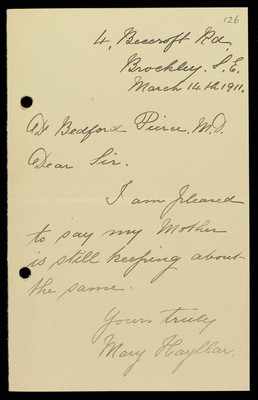 126
4, Beecroft Rd.
Brockley. S.E.
March 14th 1911.
Dr Bedford Pierce. M.D.
Dear Sir.
I am pleased
to say my Mother
is still keeping about
the same.
Yours truly
Mary Hayllar.